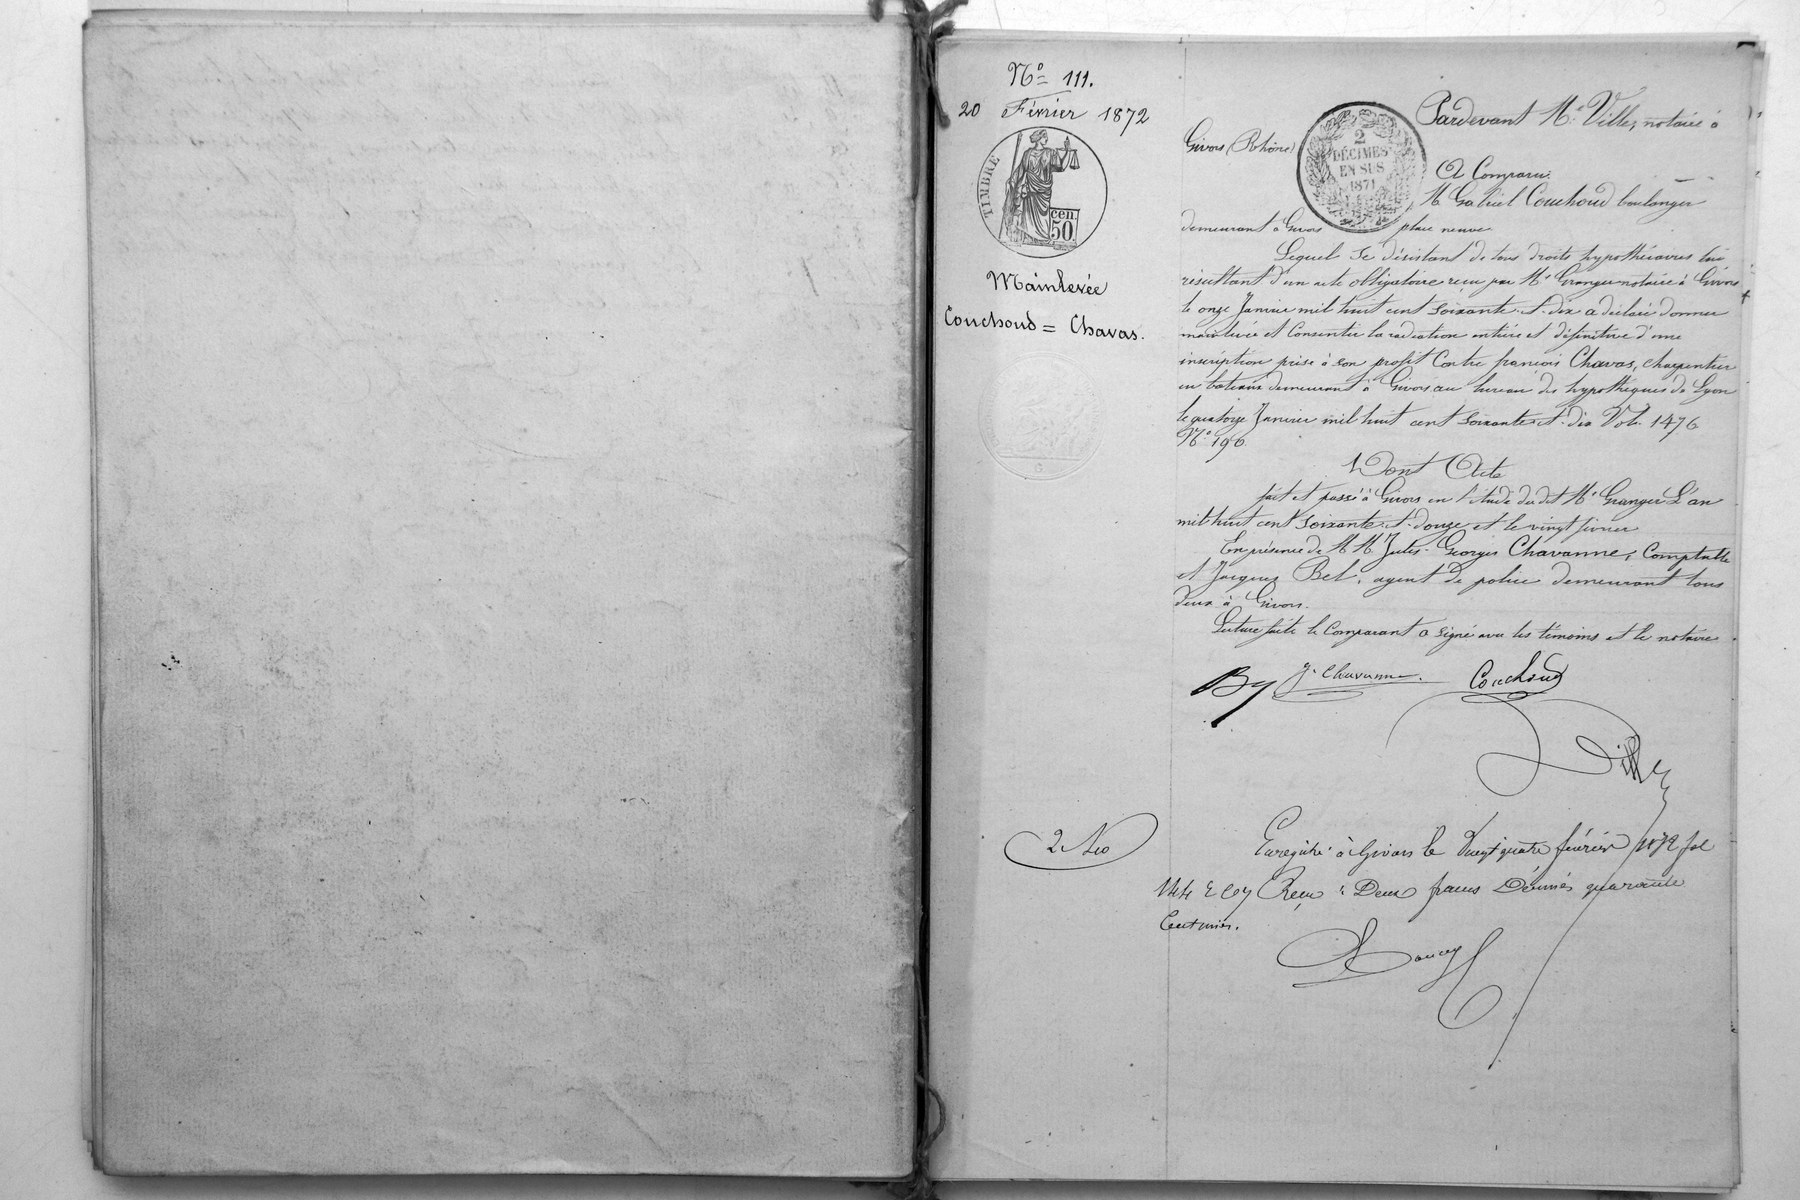 N° 111.
20 Février 1872
TIMBRE
cen.
50.
Mainlevée
Couchoud = Chavas.
G
Pardevant Me Ville, notaire à
Givors (Rhône)
2
DÉCIMES
EN SUS
1871
A Comparu
M Gabriel Couchoud boulanger
demeurant à Givors place neuve
Lequel se désistant de tous droits hypothécaires lui
résultant d'un acte obligatoire reçu par Me Granger notaire à Givors
le onze Janvier mil huit cent soixante et dix a déclaré donner
mainlevée et Consentir la radiation entière et définitive d'une
inscription prise à son profit Contre françois Chavas, charpentier
en bateaux demeurant à Givors au bureau des hypothèques de Lyon
le quatorze Janvier mil huit cent soixante et dix Vol. 1476
N° 190
Dont Acte
fait et passé à Givors en l'étude dudit Me Granger L'an
mil huit cent soixante et douze et le vingt février
En présence de M M Jules Georges Chavanne, Comptable
et Jacques Bel, agent de police demeurant tous
deux à Givors.
Lecture faite le Comparant a signé avec les témoins et le notaire
J. Chavanne.
Couchoud
Ville
2 40
Enregistré à Givors le Vingt quatre février 1872 fol
144 Reçu : Deux francs Décimes quarante
Centimes.